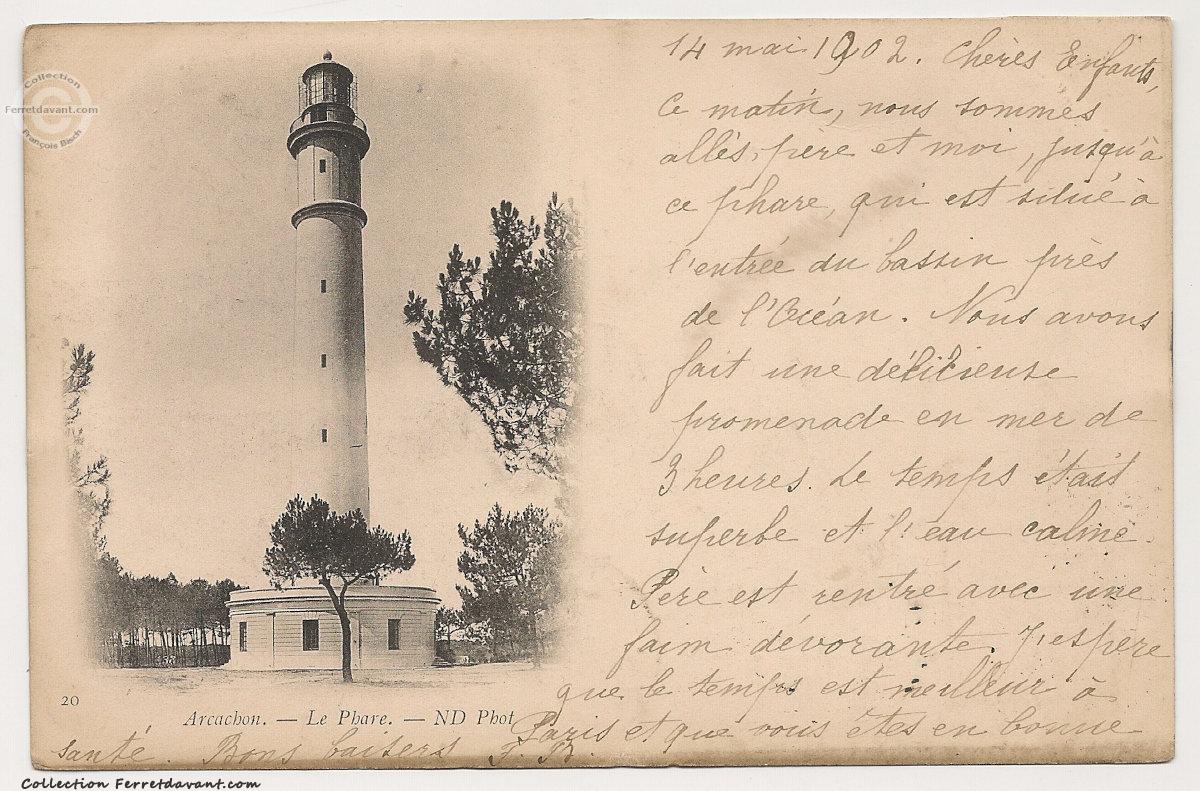 Collection
Ferretdavant.com
François Bisch
14 mai 1902. Chères Enfants,
Ce matin, nous sommes
allés, père et moi, jusqu'à
ce phare, qui est situé à
l'entrée du bassin près
de l'Océan. Nous avons
fait une délicieuse
promenade en mer de
3 heures. Le temps était
superbe et l'eau calme.
Père est rentré avec une
faim dévorante. J'espère
que le temps est meilleur à
Paris et que vous êtes en bonne
santé. Bons baisers
20
Arcachon. — Le Phare. — ND Phot
Collection Ferretdavant.com